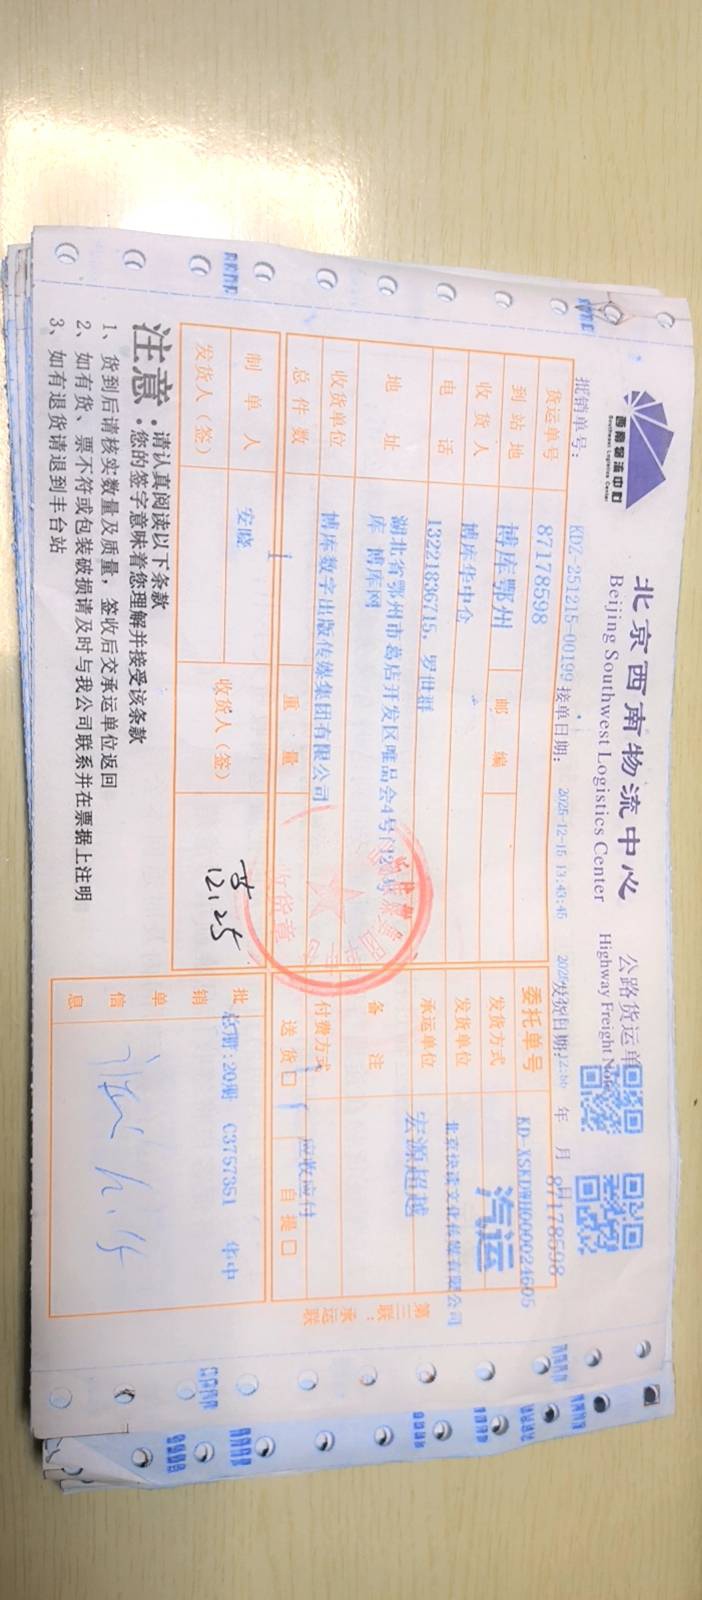 西南物流中心
Southwest Logistics Center
北京西南物流中心
Beijing Southwest Logistics Center
公路货运单
Highway Freight Note
批销单号：
KDZ-251215-00199
接单日期：
2025-12-15 13:43:45
发货日期：
年 月 日
87178598
货运单号
87178598
委托单号
KD-XSKDWH000024605
到站地
博库鄂州
邮编
发货方式
汽运
收货人
博库华中仓
发货单位
北京快读文化传媒有限公司
电话
13221836715，罗世群
承运单位
宏源超越
地址
湖北省鄂州市葛店开发区唯品会4号门12号
库 博库网
备注
收货单位
博库数字出版传媒集团有限公司
付费方式
应收应付
总件数
1
重量
送货□
自提□
制单人
安晓
收货人（签）
12.25
发货人（签）
批销单信息
总册:20册 C3757351 华中
收货章
第三联：承运联
注意：
请认真阅读以下条款
您的签字意味着您理解并接受该条款
1、货到后请核实数量及质量，签收后交承运单位返回
2、如有货、票不符或包装破损请及时与我公司联系并在票据上注明
3、如有退货请退到丰台站